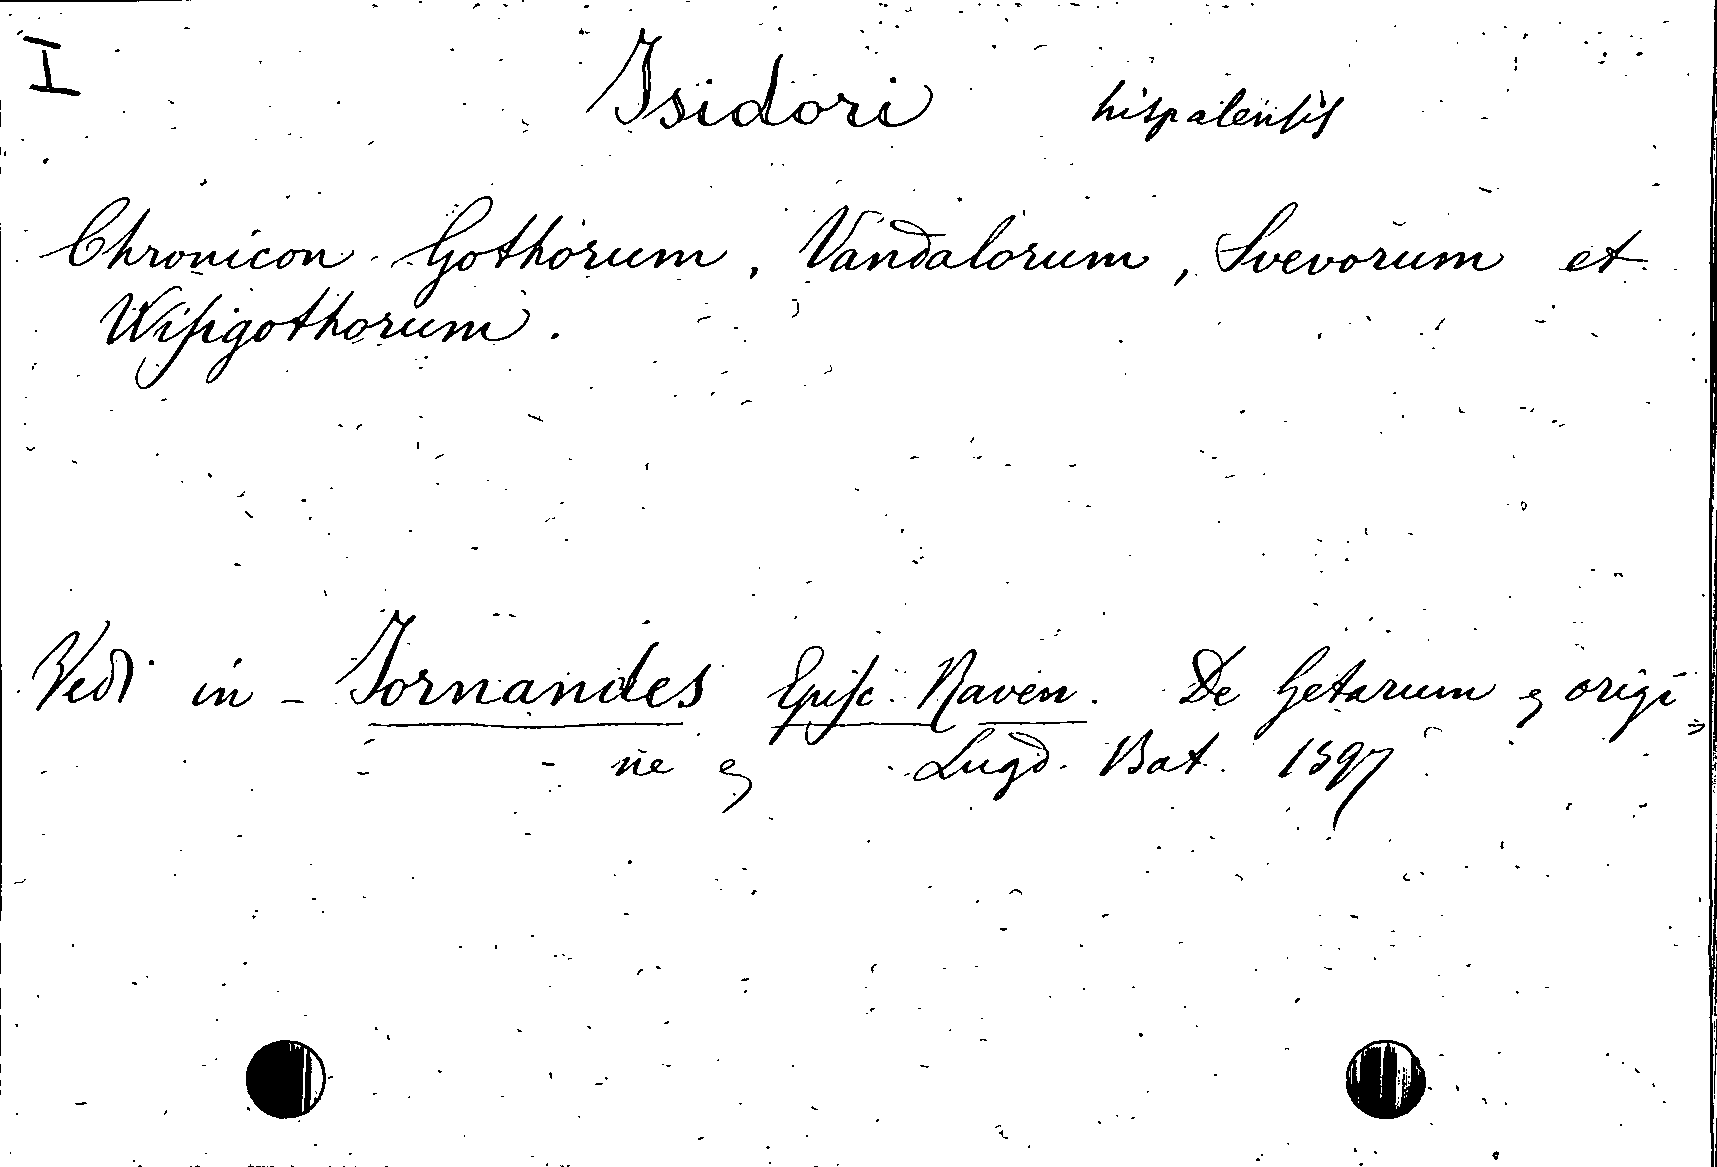 I
Isidori hispalensis
Chronicon Gothorum, Vandalorum, Svevorum et
Wisigothorum.
Vedi in - Jornandes Episc. Raven. De Getarum & origi
ne & Lugd. Bat. 1597